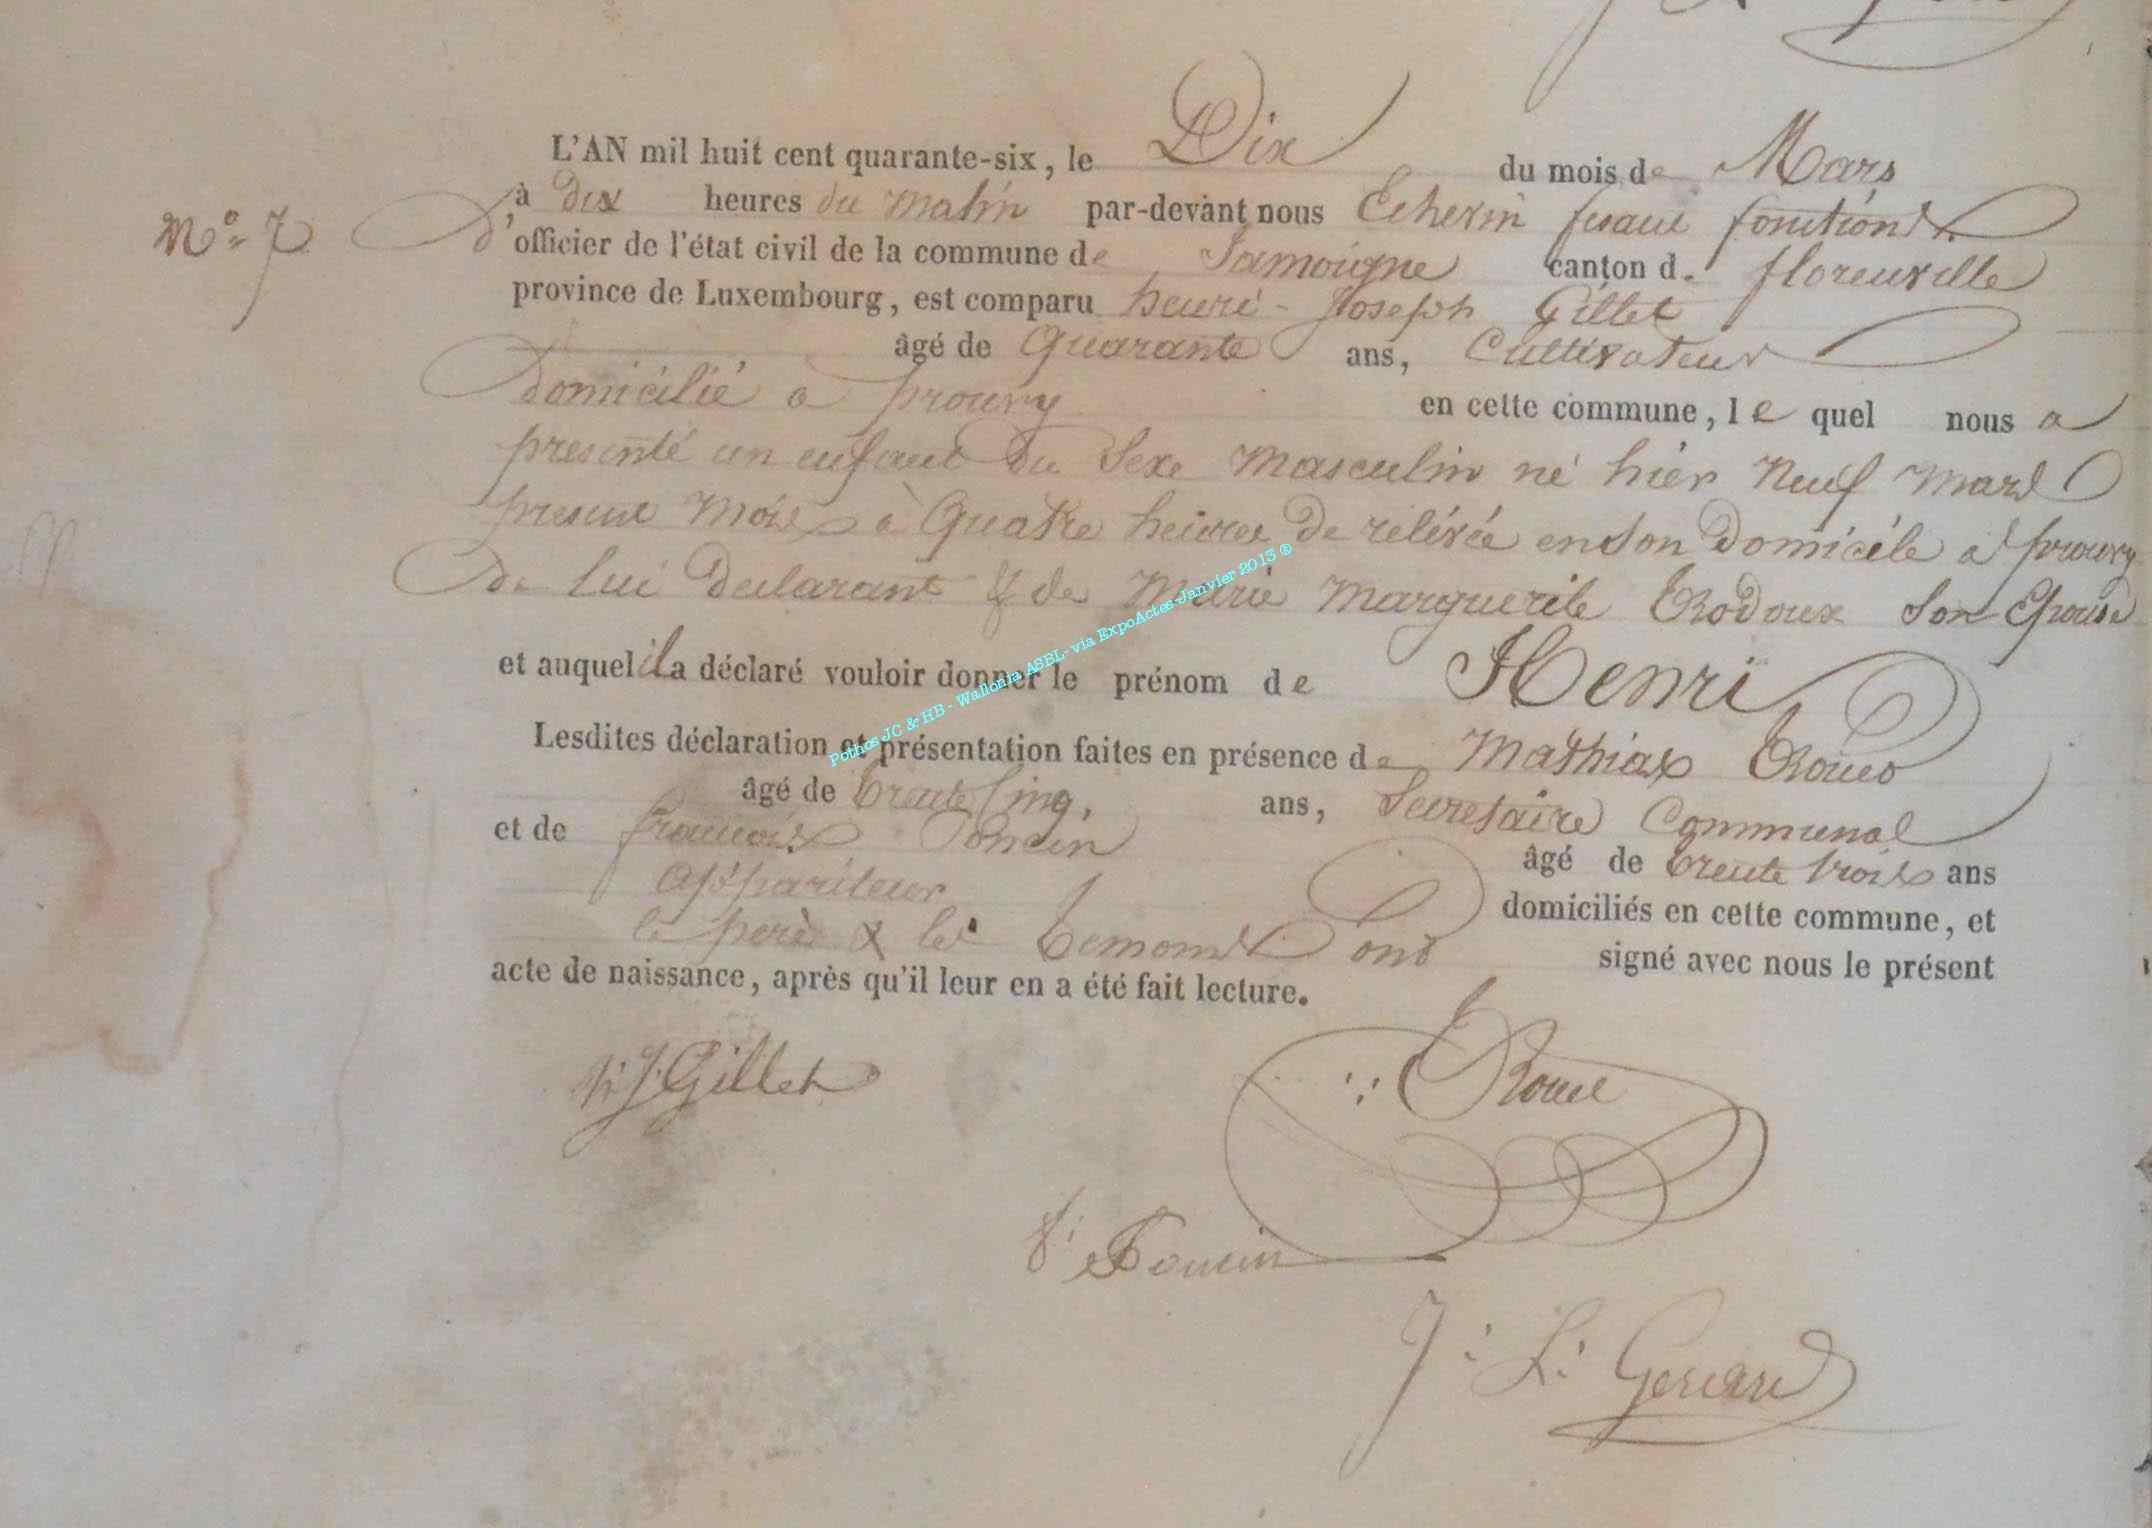 L'AN mil huit cent quarante-six, le Dix du mois de Mars
N° 7
à dix heures du matin par-devant nous Echevin fesant fonctions
d'officier de l'état civil de la commune de Jamoigne canton de florenville
province de Luxembourg, est comparu henri-Joseph Gillet
âgé de Quarante ans, Cultivateur
domicilié a prouvy en cette commune, le quel nous a
presenté un enfant du Sexe Masculin né hier Neuf mars
present Mois à Quatre heures De relévée en son Domicile a prouvy
De lui Declarant & de Marie Marguerite Rodoux Son Epouse
et auquel il a déclaré vouloir donner le prénom de Henri
Lesdites déclaration et présentation faites en présence de Mathias
âgé de trente Cinq, ans, Secretaire Communal
et de françois Poncin âgé de trente trois ans
appariteur domiciliés en cette commune, et
le père & les temoins ont signé avec nous le présent
acte de naissance, après qu'il leur en a été fait lecture.
Pothos JC & HB - Wallonia ASBL- via ExpoActes-Janvier 2013 ®
h:J:Gillet
f: Poncin
J: L: Gerard